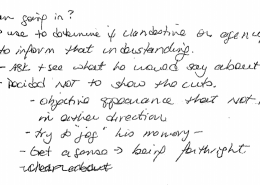 going in?
use to determine if clandestine or agency
to inform that understanding.
- Ask + see what he would say about
- Decided NOT to show the cuts.
- objective appearance that not
in either direction
- try to "jog" his memory -
- Get a sense → being forthright